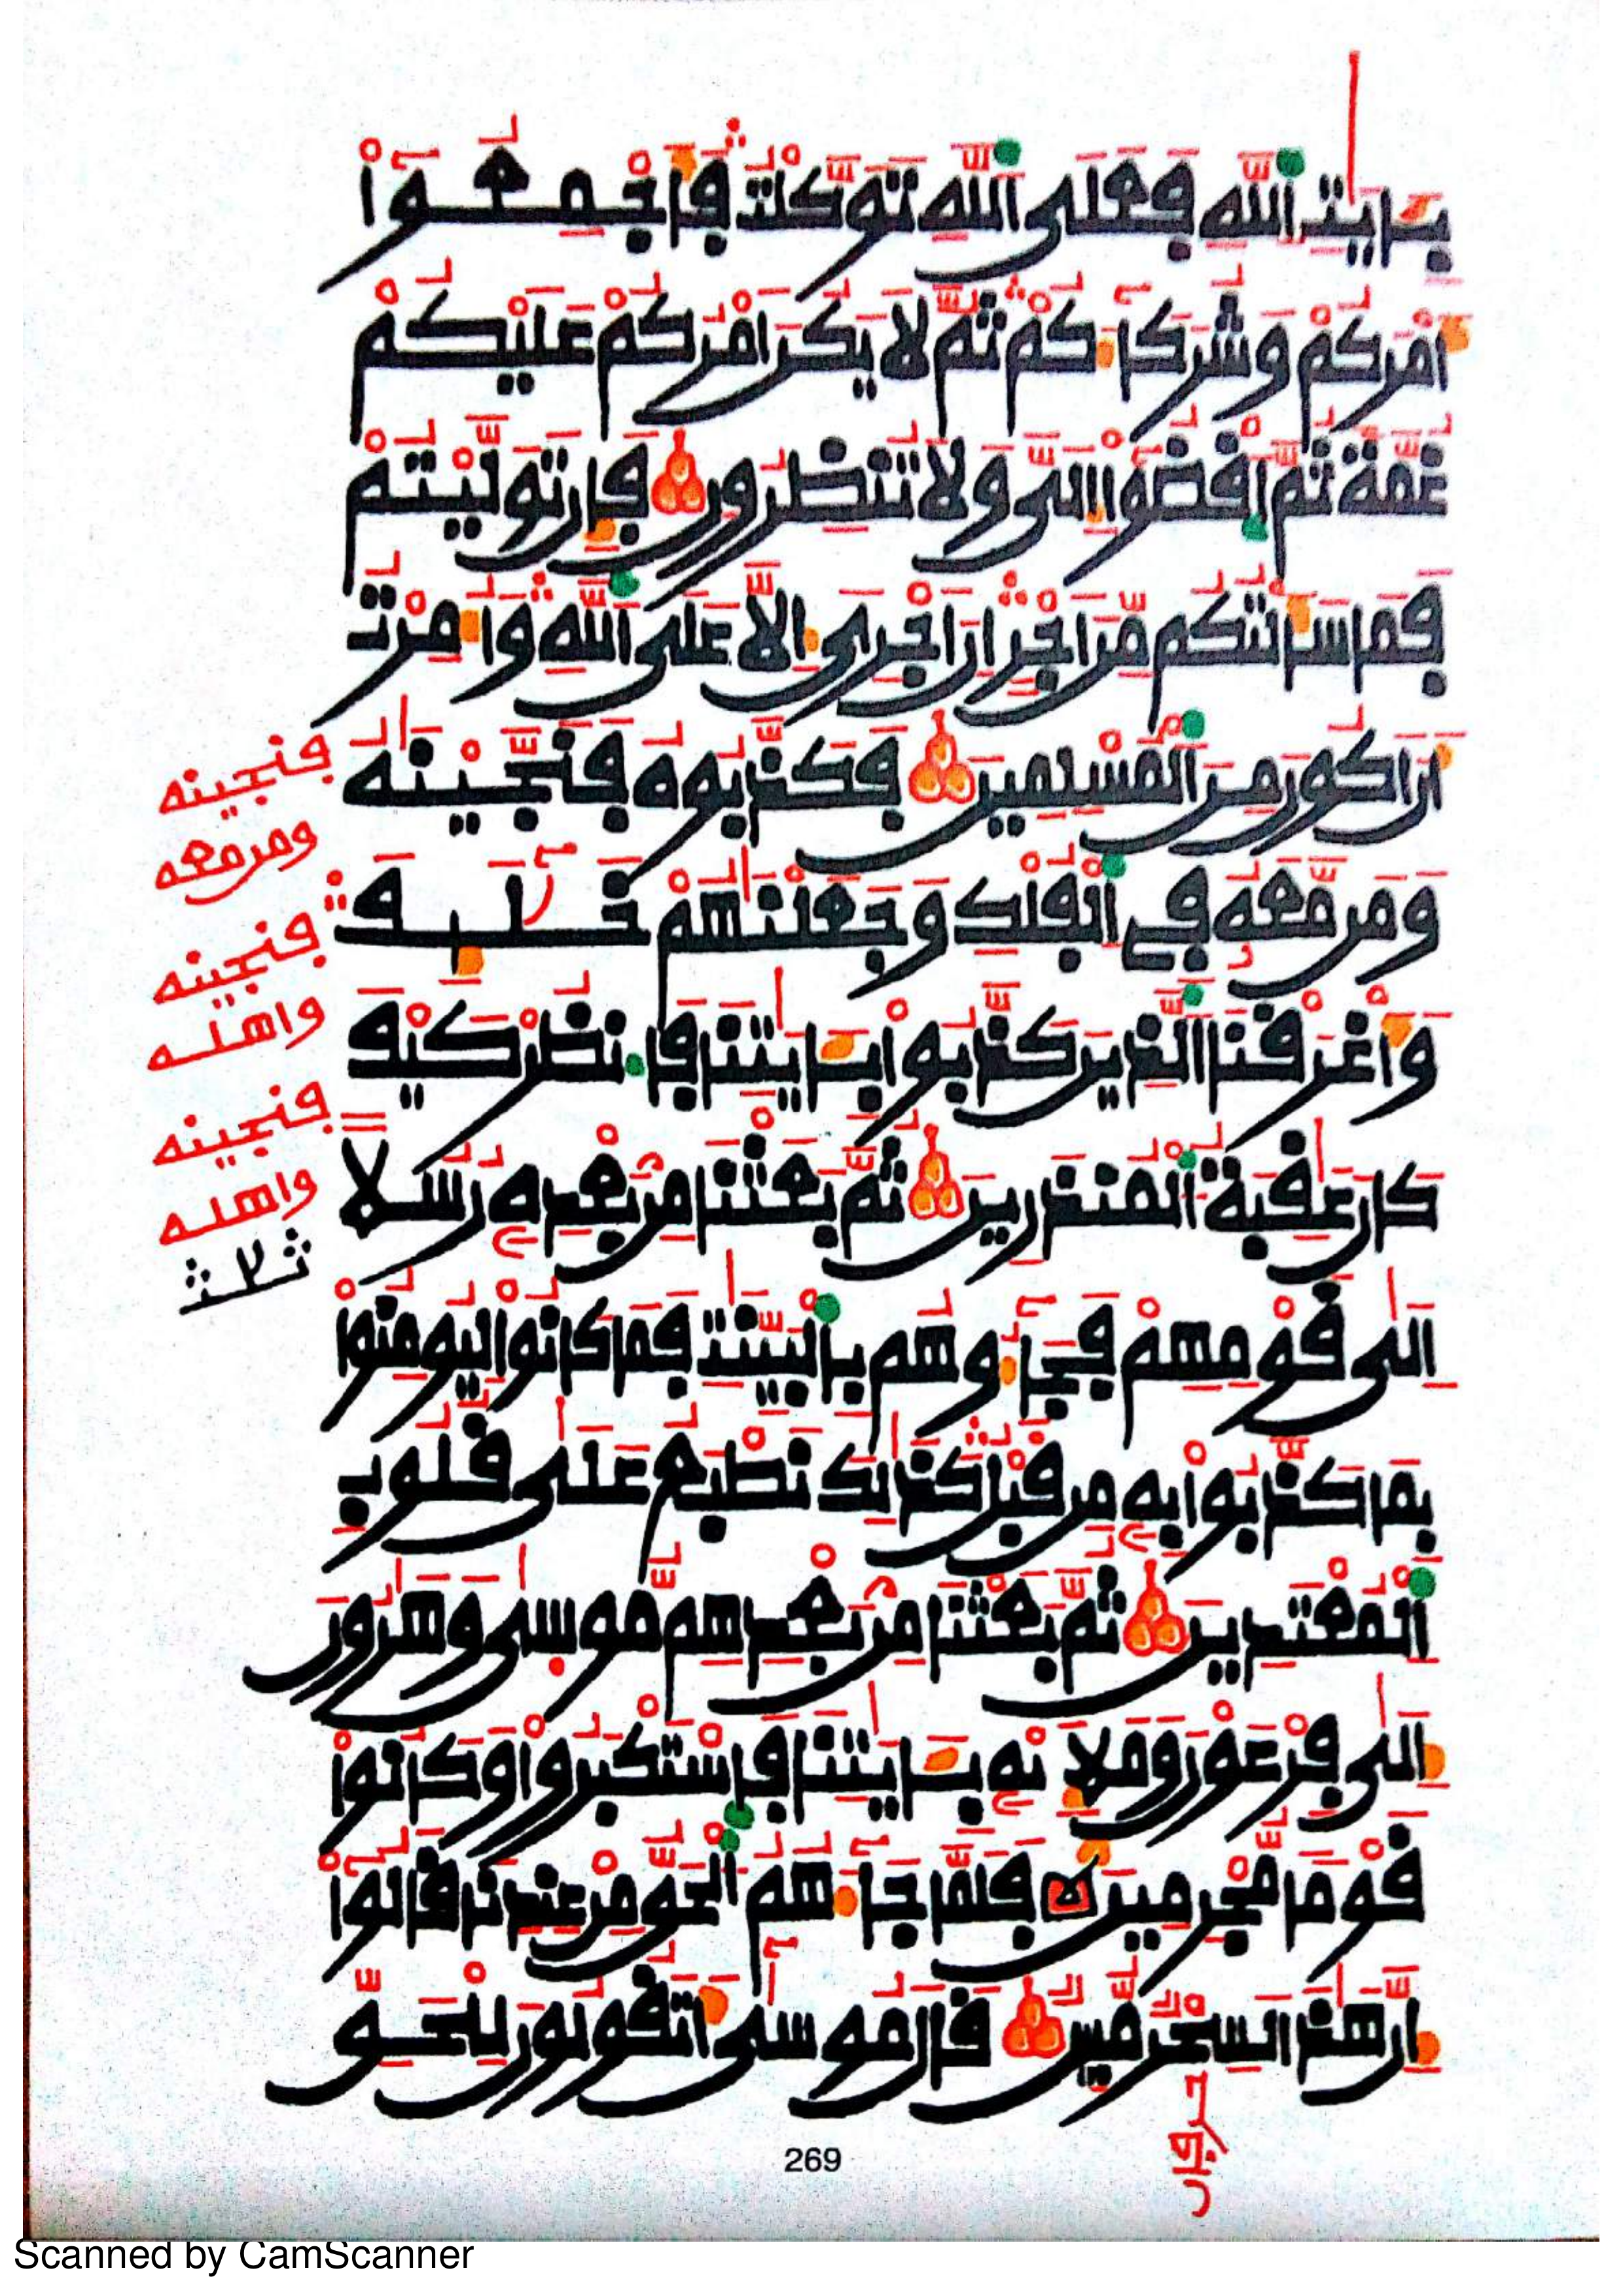 بِـَٔايَٰتِ اِ۬للَّهِ فَعَلَى اَ۬للَّهِ تَوَكَّلْتُ فَأَجْمِعُوٓاْ
أَمْرَكُمْ وَشُرَكَآءَكُمْ ثُمَّ لَا يَكُنَ اَمْرُكُمْ عَلَيْكُمْ
غُمَّةٗ ثُمَّ اَ۪قْضُوٓاْ إِلَيَّ وَلَا تُنظِرُونِ فَإِن تَوَلَّيْتُمْ
فَمَا سَأَلْتُكُم مِّنَ اَجْرٍ اِنَ اَجْرِيَ إِلَّا عَلَى اَ۬للَّهِ وَأُمِرْتُ
أَنَ اَكُونَ مِنَ اَ۬لْمُسْلِمِينَ فَكَذَّبُوهُ فَنَجَّيْنَٰهُ
وَمَن مَّعَهُۥ فِے اِ۬لْفُلْكِ وَجَعَلْنَٰهُمْ خَلَٰٓئِفَ
وَأَغْرَقْنَا اَ۬لذِينَ كَذَّبُواْ بِـَٔايَٰتِنَا فَانظُرْ كَيْفَ
كَانَ عَٰقِبَةُ اُ۬لْمُنذَرِينَ ثُمَّ بَعَثْنَا مِنۢ بَعْدِهِۦ رُسُلًا
اِلَىٰ قَوْمِهِمْ فَجَآءُوهُم بِالْبَيِّنَٰتِ فَمَا كَانُواْ لِيُومِنُواْ
بِمَا كَذَّبُواْ بِهِۦ مِن قَبْلُ كَذَٰلِكَ نَطْبَعُ عَلَىٰ قُلُوبِ
اِ۬لْمُعْتَدِينَ ثُمَّ بَعَثْنَا مِنۢ بَعْدِهِم مُّوسَىٰ وَهَٰرُونَ
إِلَىٰ فِرْعَوْنَ وَمَلَإِيْهِۦ بِـَٔايَٰتِنَا فَاسْتَكْبَرُواْ وَكَانُواْ
قَوْماٗ مُّجْرِمِينَ فَلَمَّا جَآءَهُمُ اُ۬لْحَقُّ مِنْ عِندِنَا قَالُوٓاْ
إِنَّ هَٰذَا لَسِحْرٞ مُّبِينٞ قَالَ مُوسَىٰٓ أَتَقُولُونَ لِلْحَقِّ
فنجينه
ومن معه
فنجينه
واهله
فنجينه
واهله
ثلث
269
Scanned by CamScanner